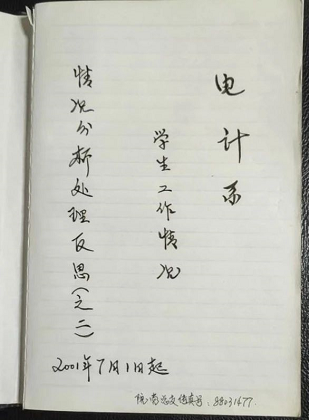 电计系
学生工作情况
情况分析处理反思(之二)
2001年7月1日起
88231477